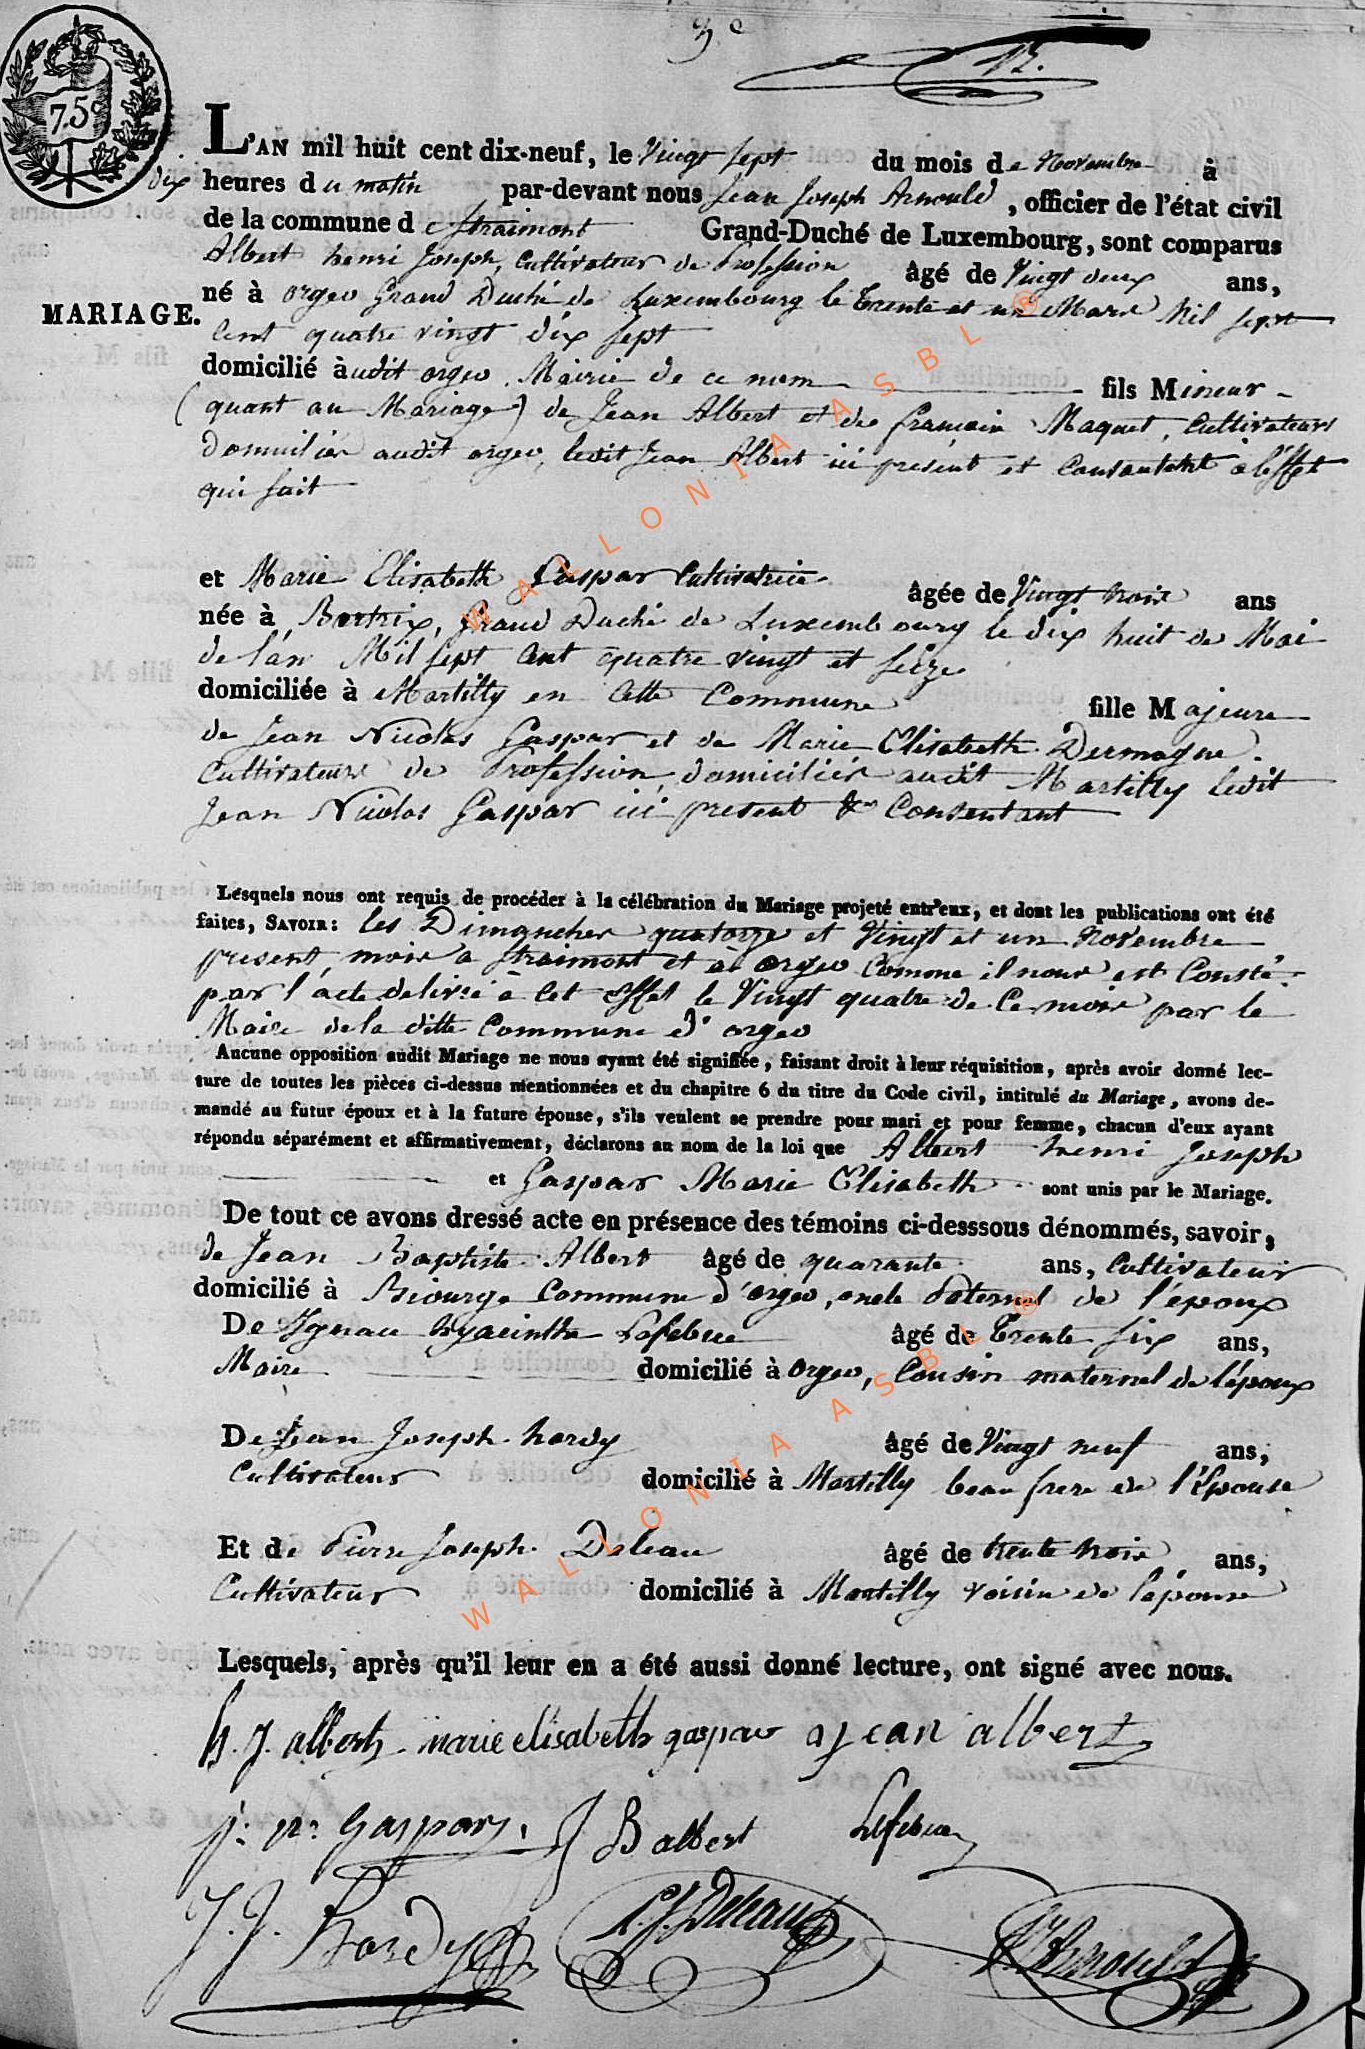 3e
12.
75c
L'AN mil huit cent dix-neuf, le Vingt sept du mois de Novembre à
dix heures du matin par-devant nous Jean Joseph Arnould, officier de l'état civil
de la commune de Straimont Grand-Duché de Luxembourg, sont comparus
Albert henri Joseph, Cultivateur de Profession âgé de Vingt deux ans,
MARIAGE.
né à orgeo Grand Duché de Luxembourg le Trente et un Mars Mil sept
Cent quatre vingt dix sept
domicilié audit orgeo, Mairie de ce nom fils Mineur
(quant au Mariage) de Jean Albert et de françoise Maquet, Cultivateurs
domiciliés audit orgeo, ledit Jean Albert ici present et Consentant a l'effet
qui suit
et Marie Elisabeth Gaspar Cultivatrice âgée de Vingt trois ans
née à Bertrix, Grand Duché de Luxembourg le dix huit de Mai
de l'an Mil sept Cent quatre vingt et seize
domiciliée à Martilly en Cette Commune fille Majeure
de Jean Nicolas Gaspar et de Marie Elisabeth Dermagne
Cultivateurs de Profession, domiciliés audit Martilly ledit
Jean Nicolas Gaspar ici present & Consentant
Lesquels nous ont requis de procéder à la célébration du Mariage projeté entr'eux, et dont les publications ont été
faites, SAVOIR: les Dimanches quatorze et Vingt et un Novembre
present mois a Straimont et à orgeo Comme il nous est Consté
par l'acte delivré à Cet effet le Vingt quatre de Ce mois par le
Maire de la ditte Commune d'orgeo
Aucune opposition audit Mariage ne nous ayant été signifiée, faisant droit à leur réquisition, après avoir donné lec-
ture de toutes les pièces ci-dessus mentionnées et du chapitre 6 du titre du Code civil, intitulé du Mariage, avons de-
mandé au futur époux et à la future épouse, s'ils veulent se prendre pour mari et pour femme, chacun d'eux ayant
répondu séparément et affirmativement, déclarons au nom de la loi que Albert henri Joseph
et Gaspar Marie Elisabeth sont unis par le Mariage.
De tout ce avons dressé acte en présence des témoins ci-desssous dénommés, savoir,
de Jean Baptiste Albert âgé de quarante ans, Cultivateur
domicilié à Biourge Commune d'orgeo, oncle Paternel de l'époux
De Ignace hyacinthe Lefebvre âgé de Trente six ans,
Maire domicilié à orgeo, Cousin maternel de l'époux
De Jean Joseph hardy âgé de Vingt neuf ans,
Cultivateur domicilié à Martilly beau frere de l'Epouse
Et de Pierre Joseph Deleau âgé de trente trois ans,
Cultivateur domicilié à Martilly voisin de l'épouse
Lesquels, après qu'il leur en a été aussi donné lecture, ont signé avec nous.
h. J. albert marie elisabeth gaspar jean albert
j: n: Gaspar, J B albert Lefebvre
J. J. Hardy P. J. Deleau J J Arnould
WALLONIA ASBL ®
WALLONIA ASBL ®